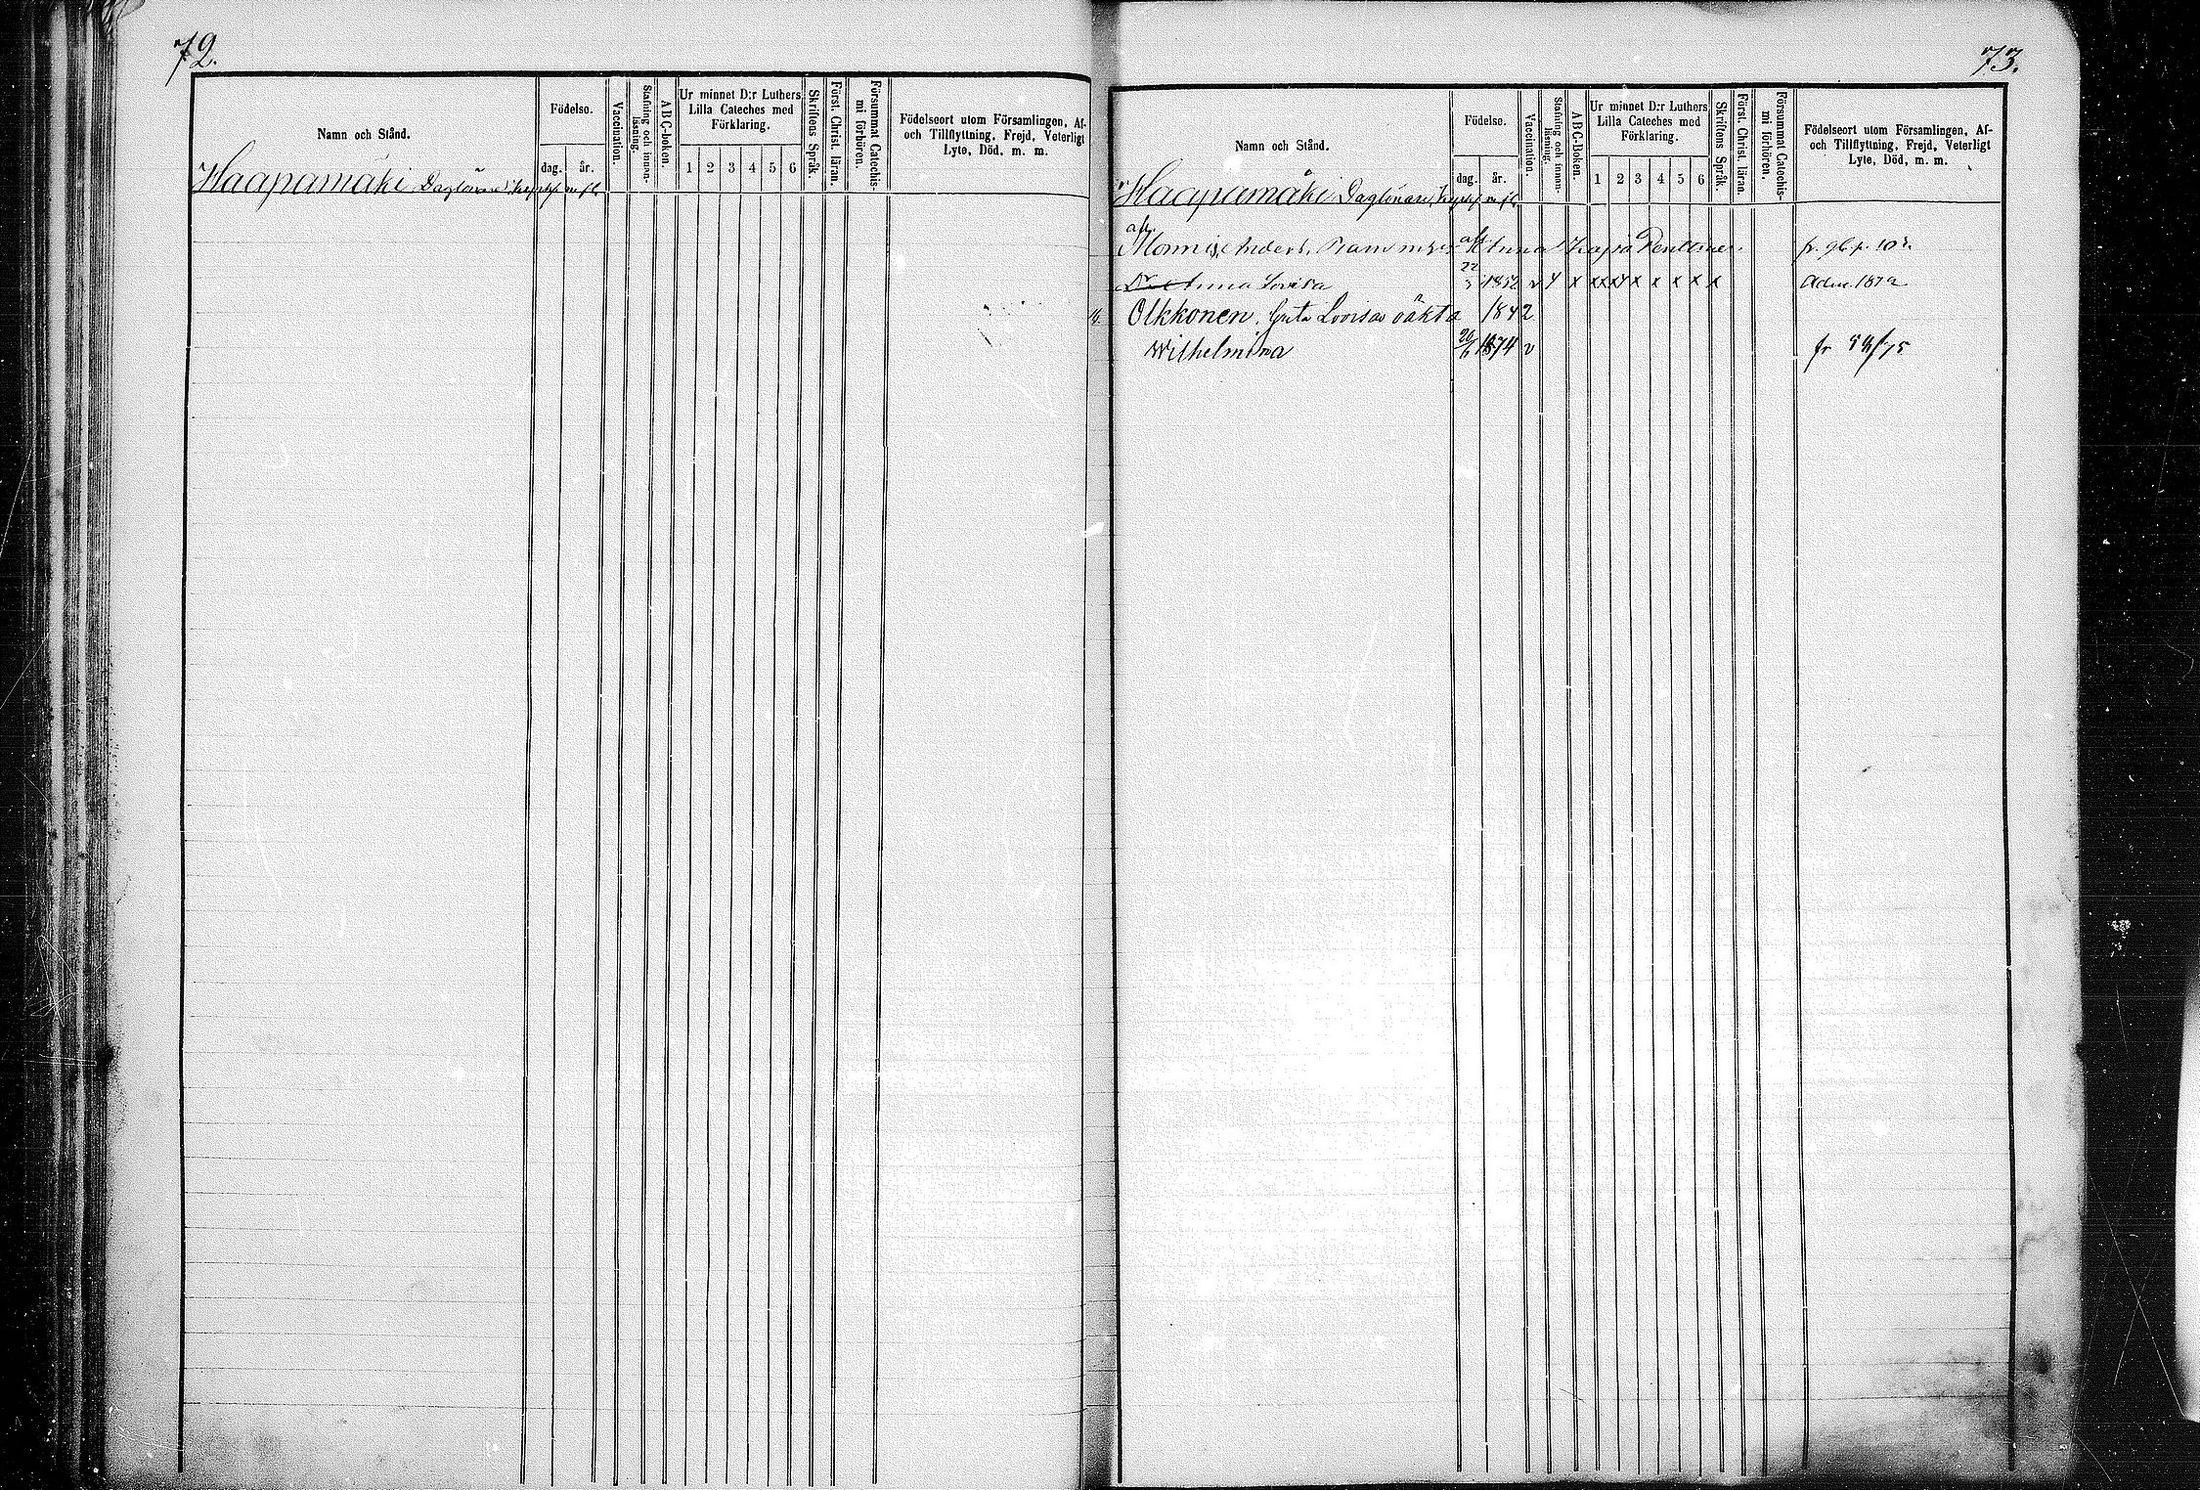 72.
Namn och Stånd.
Födelse.
dag.
år.
Vaccination.
Stafning och innan-
läsning.
ABC-boken.
Ur minnet D:r Luthers
Lilla Cateches med
Förklaring.
1 2 3 4 5 6
Skriftens Språk.
Först. Christ. läran.
Försummat Catechis-
mi förhören.
Födelseort utom Församlingen, Af-
och Tillflyttning, Frejd, Veterligt
Lyte, Död, m. m.
Haapamäki Daglönare, m fl.
73.
Namn och Stånd.
Födelse.
dag.
år.
Vaccination.
Stafning och innan-
läsning.
ABC-boken.
Ur minnet D:r Luthers
Lilla Cateches med
Förklaring.
1 2 3 4 5 6
Skriftens Språk.
Först. Christ. läran.
Försummat Catechis-
mi förhören.
Födelseort utom Församlingen, Af-
och Tillflyttning, Frejd, Veterligt
Lyte, Död, m. m.
Haapamäki Daglönare, m fl.
Anna Kajsa
Anna Lovisa 1852 v x x x x x x Adm. 1872
Olkkonen, Greta Lovisas oäkta 1842
Wilhelmina 1874 v fr